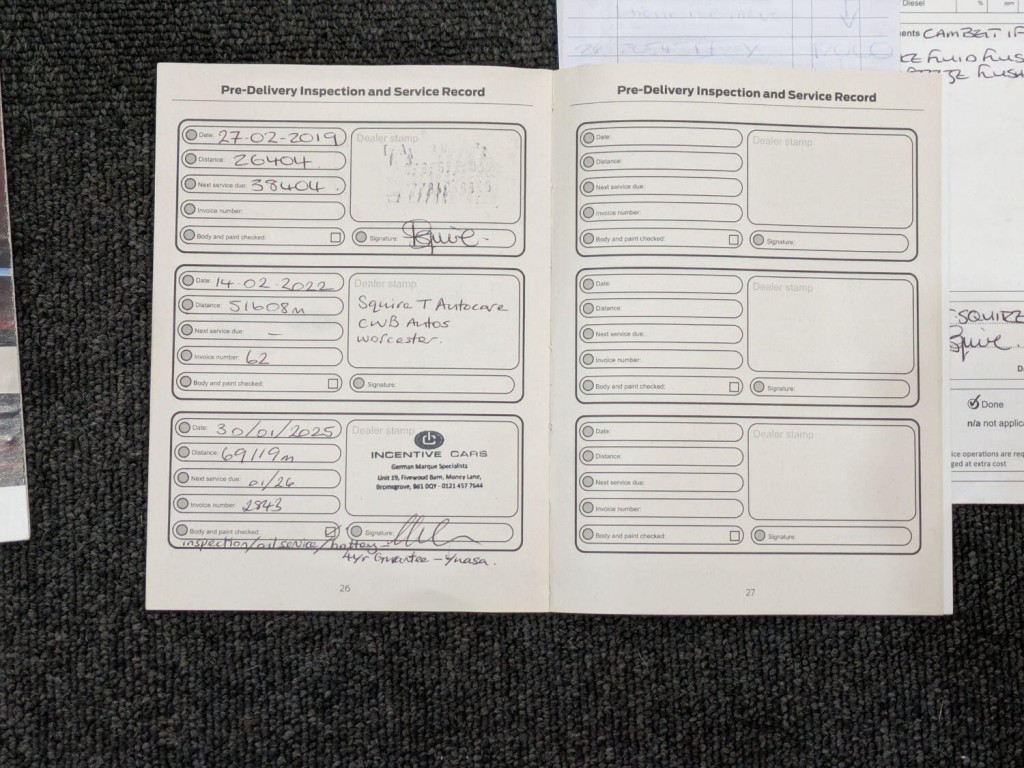 Diesel
%
ents CAMBELT IF
KE FLUID FLUS
FLUSH
Pre-Delivery Inspection and Service Record
Date: 27-02-2019
Dealer stamp
Distance: 26404
Next service due: 38404.
Invoice number:
Body and paint checked:
Signature: Squire.
Date: 14-02-2022
Dealer stamp
Distance: 51608m
Squire T Autocare
CWB Autos
Worcester.
Next service due: –
Invoice number: 62
Body and paint checked:
Signature:
Date: 30/01/2025
Dealer stamp
INCENTIVE CARS
German Marque Specialists
Unit 19, Fivewood Barn, Money Lane,
Bromsgrove, B61 0QY - 0121 457 7644
Distance: 69119m
Next service due: 01/26
Invoice number: 2843
Body and paint checked:
Signature:
inspection/oil service/battery -
4yr Guarantee - Yuasa.
26
Pre-Delivery Inspection and Service Record
Date:
Dealer stamp
Distance:
Next service due:
Invoice number:
Body and paint checked:
Signature:
Date:
Dealer stamp
Distance:
Next service due:
Invoice number:
Body and paint checked:
Signature:
Date:
Dealer stamp
Distance:
Next service due:
Invoice number:
Body and paint checked:
Signature:
27
SQUIRE
Squire.
D
Done
n/a not applica
ice operations are req
ged at extra cost